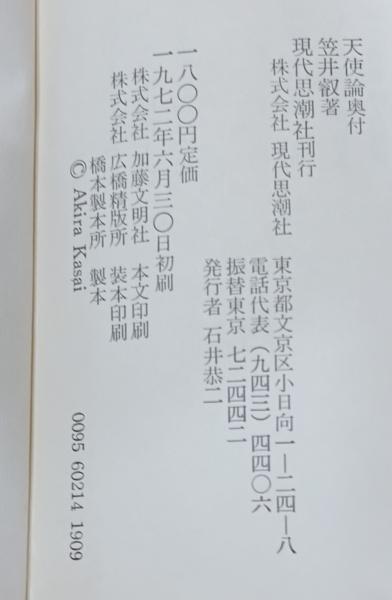 天使論奥付
笠井叡著
現代思潮社刊行
株式会社 現代思潮社
東京都文京区小日向一―二四―八
電話代表(九四三)四四〇六
振替東京 七二四四二
発行者 石井恭二
一八〇〇円定価
一九七二年六月三〇日初刷
株式会社 加藤文明社 本文印刷
株式会社 広橋精版所 装本印刷
橋本製本所 製本
© Akira Kasai
0095 60214 1909